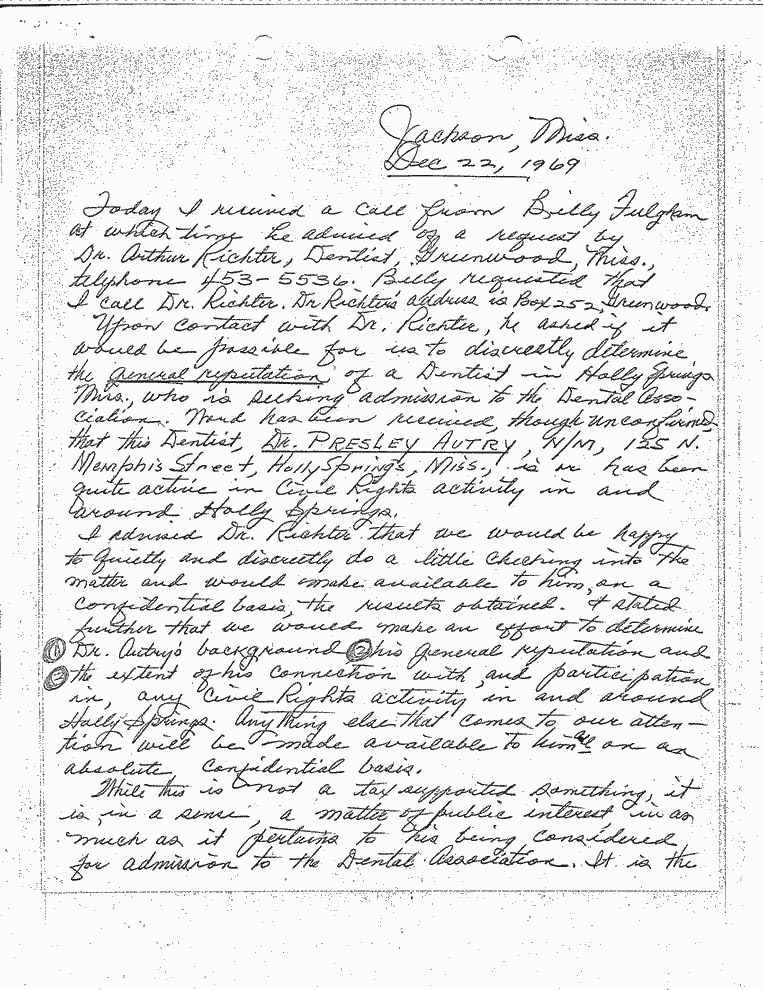 Jackson, Miss.
Dec 22, 1969
Today I received a call from Billy Fulgham
at which time he advised of a request by
Dr. Arthur Richter, Dentist, Greenwood, Miss.,
telphone 453-5536. Billy requested that
I call Dr. Richter. Dr Richter's address is Box 252, Greenwood.
Upon contact with Dr. Richter, he asked if it
would be possible for us to discreetly determine
the general reputation of a Dentist in Holly Springs
Miss., who is seeking admission to the Dental Asso-
ciation. Word has been received, though unconfirmed,
that this Dentist, Dr. PRESLEY AUTRY, N/M, 125 N.
Memphis Street, Holly Springs, Miss., is or has been
quite active in Civil Rights activity in and
around Holly Springs.
I advised Dr. Richter that we would be happy
to quietly and discreetly do a little checking into the
matter and would make available to him, on a
confidential basis, the results obtained. I stated
further that we would make an effort to determine
① Dr. Autry's background ② his general reputation and
③ the extent of his connection with, and participation
in, any Civil Rights activity in and around
Holly Springs. Anything else that comes to our atten-
tion will be made available to him all on an
absolute confidential basis.
While this is not a tax supported something, it
is, in a sense, a matter of public interest in as
much as it pertains to his being considered
for admission to the Dental Association. It is the